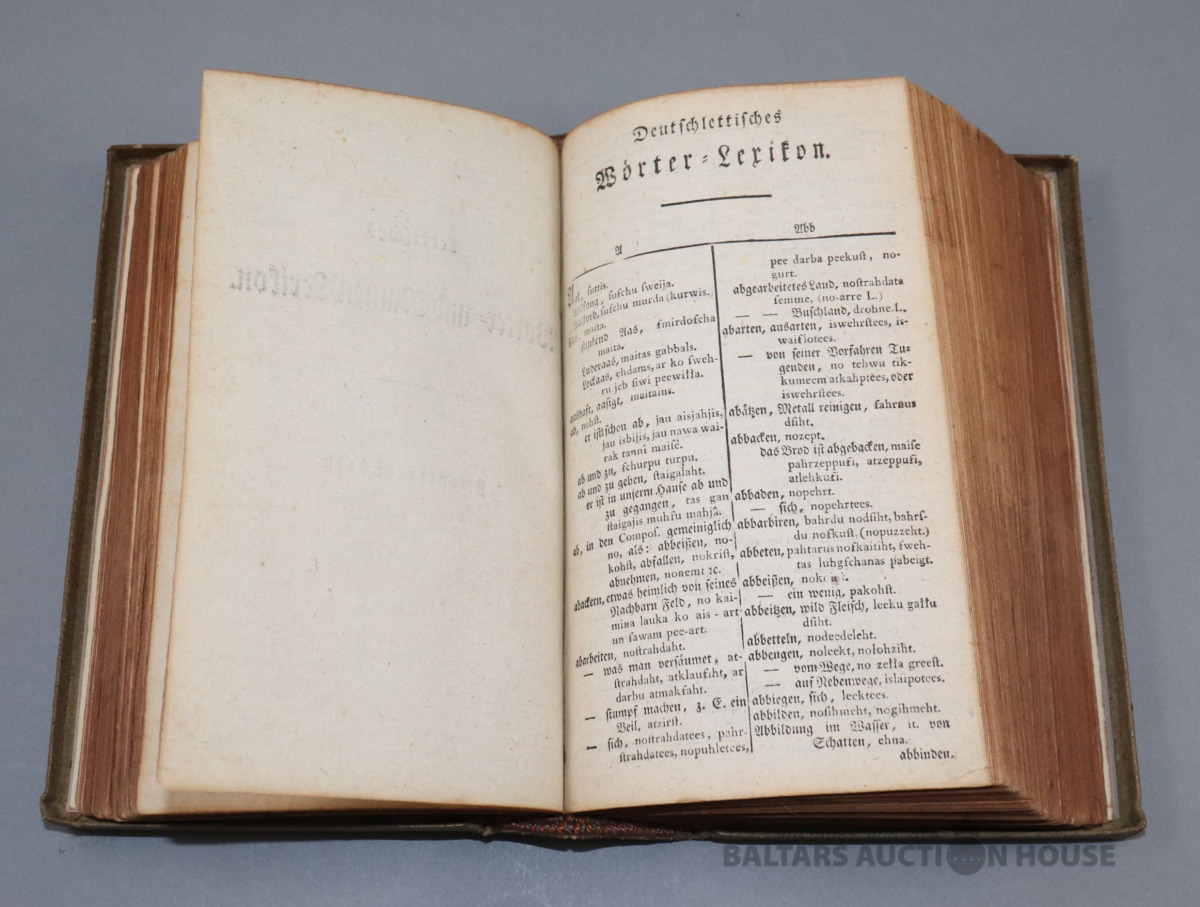 Deutschlettisches
Wörter-Lexikon.
A
Aal, suttis.
Aalfang, suschu sweija.
Aalkorb, suschu murda (kurwis.)
Aas, maita.
stinkend Aas, smirdoscha
maita.
Luderaas, maitas gabbals.
Lockaas, ehdams, ar ko sweh-
ru jeb siwi peewilla.
aashaft, aasigt, maitains.
ab, nohst.
er ist schon ab, jau aisjahjis,
jau isbijis, jau nawa wai-
rak tanni maisê.
ab und zu, schurpu turpu.
ab und zu gehen, staigalaht.
er ist in unserm Hause ab und
zu gegangen, tas gan
staigajis muhsu mahjâ.
ab, in den Compos. gemeiniglich
no, als: abbeißen, no-
kohst, abfallen, nokrist,
abnehmen, noņemt ꝛc.
abackern, etwas heimlich von seines
Nachbarn Feld, no kai-
miņa lauka ko ais-art
un sawam pee-art.
abarbeiten, nostrahdaht.
— was man versäumet, at-
strahdaht, atklausiht, ar
darbu atmaksaht.
— stumpf machen, z. E. ein
Beil, atzirst.
— sich, nostrahdatees, pahr-
strahdatees, nopuhletees,
Abb
pee darba peekust, no-
gurt.
abgearbeitetes Land, nostrahdata
semme, (no-arre L.)
— — Buschland, drohne L.
abarten, ausarten, iswehrstees, is-
waislotees.
— von seiner Vorfahren Tu-
genden, no tehwu tik-
kumeem atkahptees, oder
iswehrstees.
abätzen, Metall reinigen, sahrņus
dsiht.
abbacken, nozept.
das Brod ist abgebacken, maise
pahrzeppusi, atzeppusi,
atlehkusi.
abbaden, nopehrt.
— sich, nopehrtees.
abbarbiren, bahrdu nodsiht, bahrs-
du noskust, (nopuzzeht.)
abbeten, pahtarus noskaitiht, sweh-
tas luhgschanas pabeigt.
abbeißen,
— ein wenig, pakohst.
abbeitzen, wild Fleisch, leeku gallu
dsiht.
abbetteln, nodeedeleht.
abbeugen, noleekt, nolohziht.
— vom Wege, no zella greest.
— auf Nebenwege, islaipotees.
abbiegen, sich, leektees.
abbilden, nosihmeht, nogihmeht.
Abbildung im Wasser, it. von
Schatten, ehna.
abbinden.
BALTARS AUCTION HOUSE